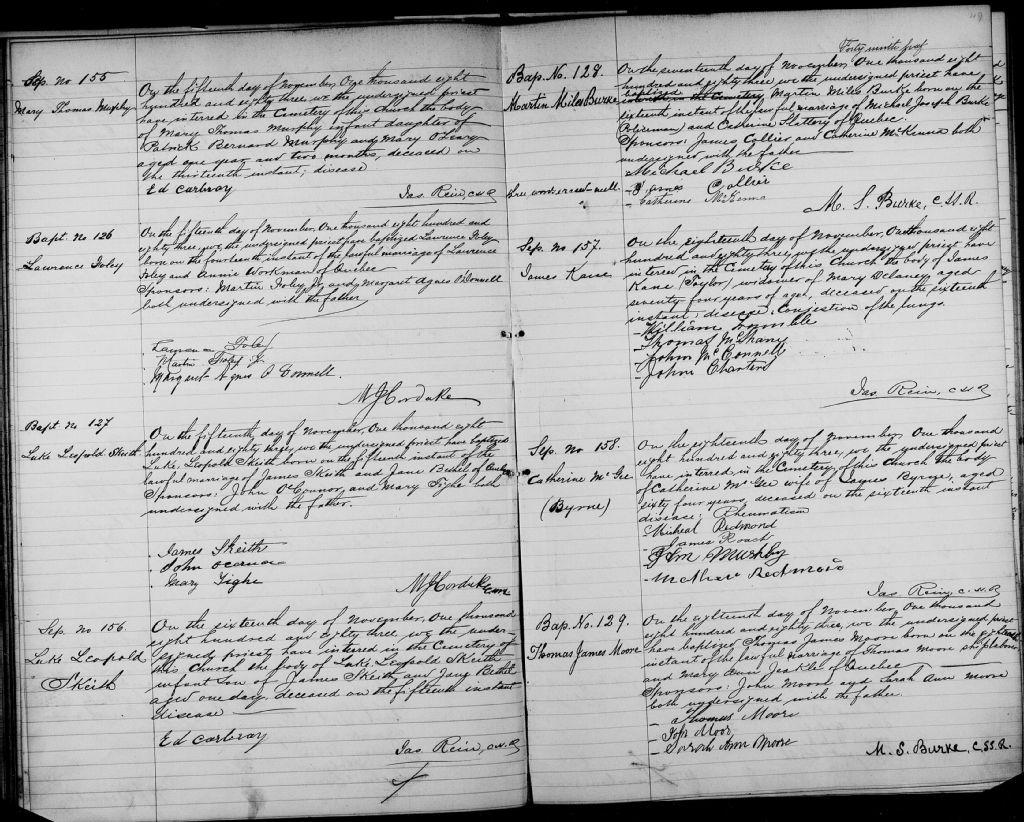 Sep. no 155
Mary Thomas Murphy
On the fifteenth day of November, One thousand eight
hundred and eighty three we the undersigned priest
have interred in the Cemetery of this Church the body
of Mary Thomas Murphy infant daughter of
Patrick Bernard Murphy and Mary O'Leary
aged one year and two months, deceased on
the thirteenth instant; disease
Ed Carbray
Jas. Rein, C.SS.R
Bapt. No 126
Lawrence Foley
On the fifteenth day of November, One thousand eight hundred and
eighty three, we the undersigned priest have baptized Lawrence Foley
born on the fourteenth instant of the lawful marriage of Lawrence
Foley and Annie Workman of Quebec
Sponsors: Martin Foley Jr, and Margaret Agnes O'Donnell
both undersigned with the father
Martin Foley Jr.
Margaret Agnes O Donnell.
MJCorduke
Bapt. No 127
Luke Leopold Skeith
On the fifteenth day of November, One thousand eight
hundred and eighty three, we the undersigned priest have baptized
Luke Leopold Skeith born on the fifteenth instant of the
lawful marriage of James Skeith and Jane Bethel of Quebec
Sponsors: John O'Connor, and Mary Tighe both
undersigned with the father.
James Skeith
John
Mary Tighe
MJCorduke
Sep. no 156
Luke Leopold
Skeith
On the sixteenth day of November, One thousand
eight hundred and eighty three, we the under-
signed, priest, have interred in the Cemetery of
this Church the body of Luke Leopold Skeith
infant son of James Skeith and Jane Bethel
aged one day, deceased on the fifteenth instant
disease
Ed Carbray
Jas. Rein, C.SS.R
49
Forty ninth
Bap. No. 128.
Martin Miles Burke
On the seventeenth day of November, One thousand eight
hundred and eighty three we the undersigned priest have
baptized
interred in the Cemetery Martin Miles Burke born on the
sixteenth instant of the lawful marriage of Michael Joseph Burke
(Policeman) and Catherine Slattery of Quebec.
Sponsors: James Collier and Catherine McKenna both
undersigned with the father
Michael Burke
James Collier
Catherine McKenna
M. S. Burke, C.SS.R.
Sep. no 157.
James Kane
On the eighteenth day of November, One thousand eight
hundred and eighty three, we the undersigned priest have
intered in the Cemetery of this Church the body of James
Kane (Taylor), widower of Mary Delaney, aged
seventy four years of age, deceased on the sixteenth
instant; disease; Conjestion of the lungs.
William Tromble
Thomas McSharry
John McConnell
John Charters
Jas. Rein, C.SS.R
Sep. no 158.
Catherine McGee
(Byrne)
On the eighteenth day of November, One thousand
eight hundred and eighty three, we the undersigned priest
have interred in the Cemetery, of this Church the body
of Catherine McGee wife of James Byrne, aged
sixty four years, deceased on the sixteenth instant
disease; Rheumatism
Micheal Redmond
James Roach
John Murphy
Jas. Rein, C.SS.R
Bap. No. 129.
Thomas James Moore
On the eighteenth day of November, One thousand
eight hundred and eighty three, we the undersigned priest
have baptized Thomas James Moore born on the
instant of the lawful marriage of Thomas Moore ship laborer
and Mary Ann Jenkles of Quebec
Sponsors: John Moore and Sarah Ann Moore
both undersigned with the father.
Thomas Moore
Jos Moor
Sarah Ann Moore
M. S. Burke, C.SS.R.